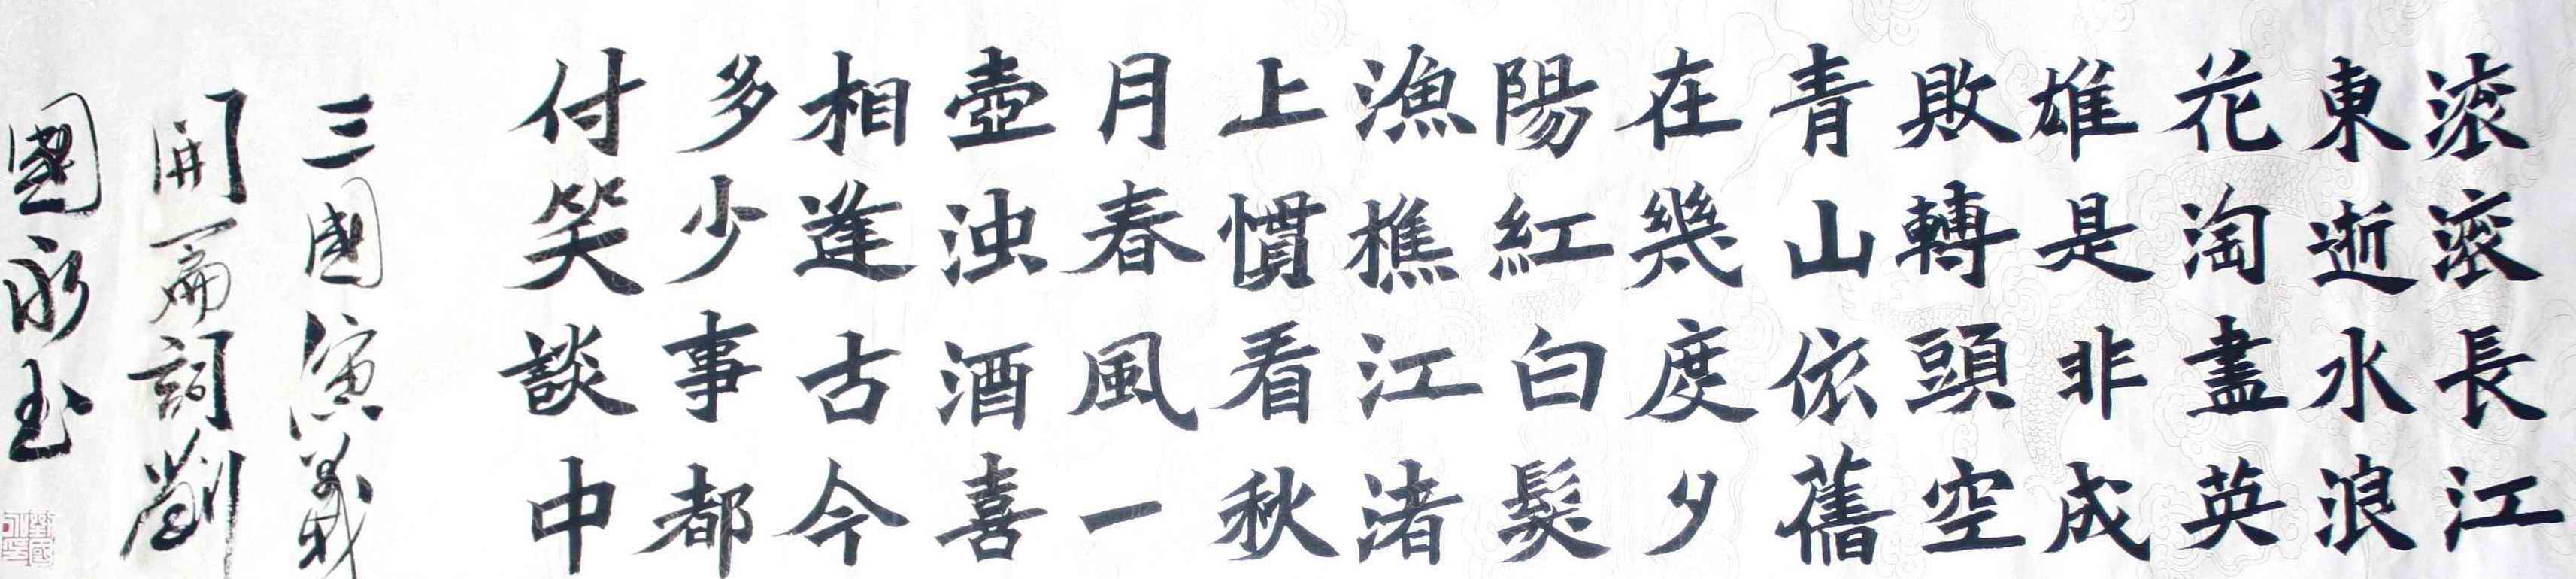 滚滚長江
東逝水浪
花淘盡英
雄是非成
敗轉頭空
青山依舊
在幾度夕
陽紅白髮
漁樵江渚
上慣看秋
月春風一
壺浊酒喜
相逢古今
多少事都
付笑談中
三國演義
開篇詞劉
國永書